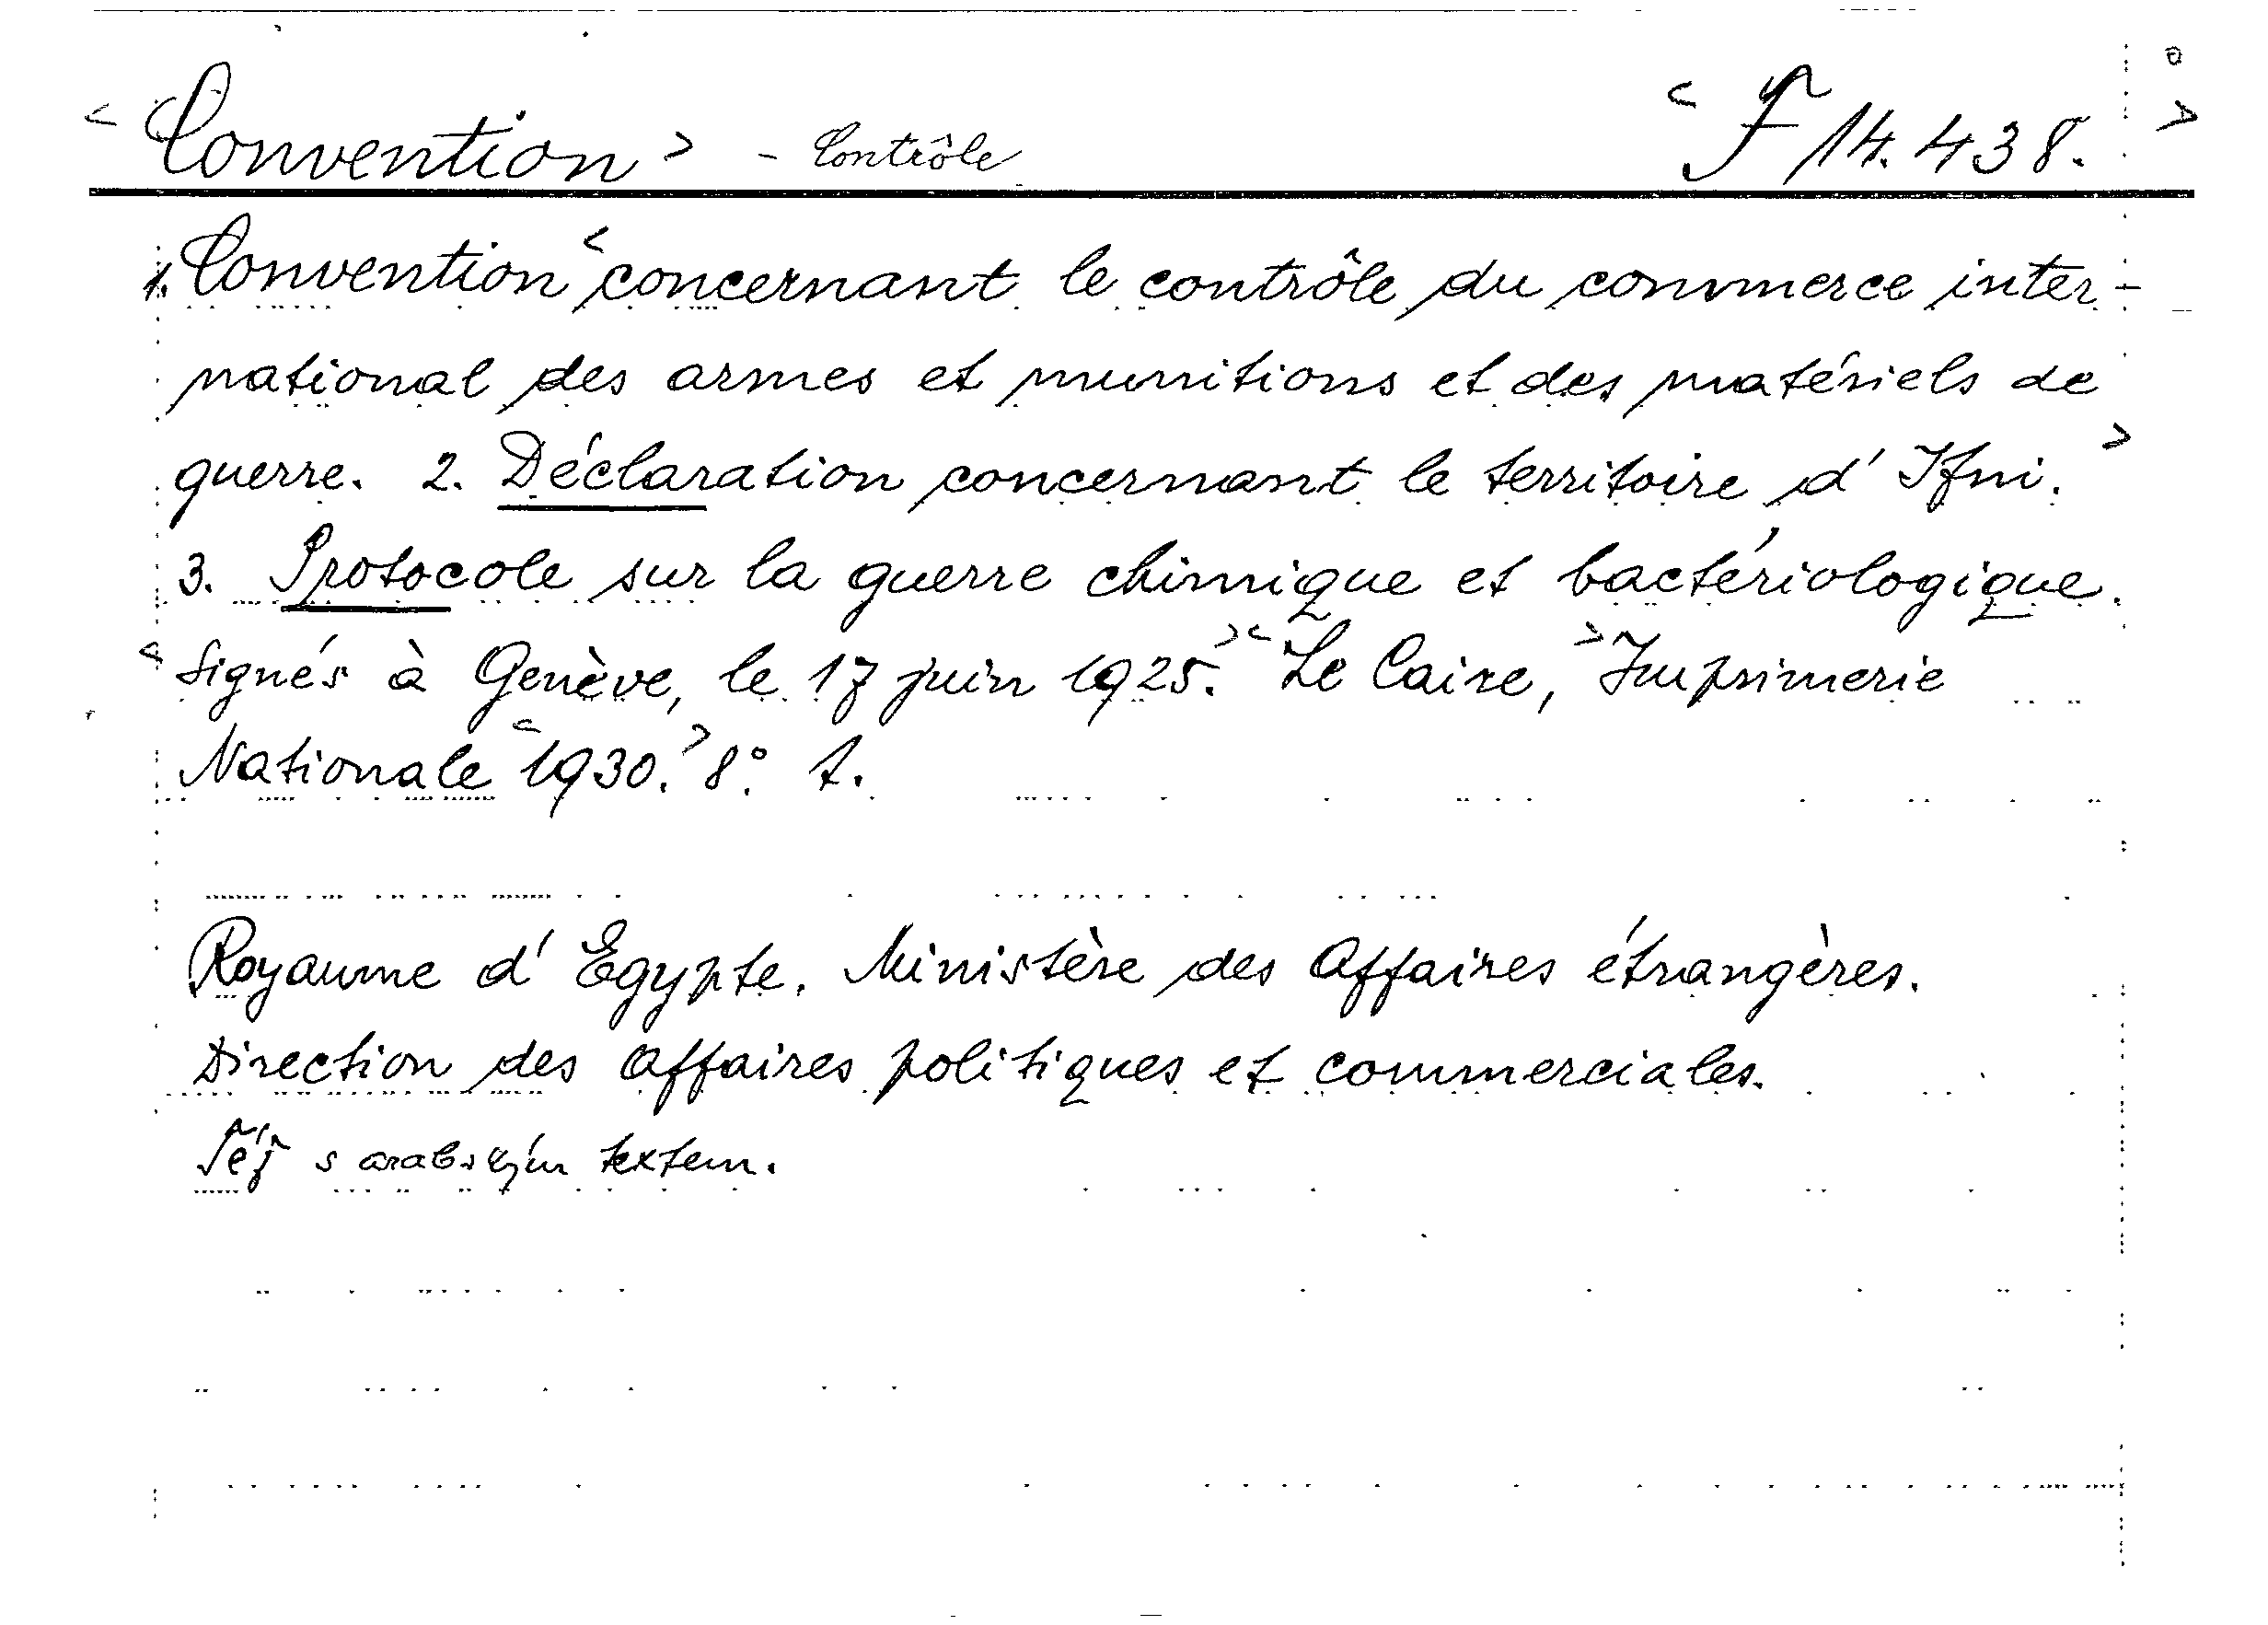 < Convention > - Contrôle < F 14.438. >
1. Convention < concernant le contrôle du commerce inter-
national des armes et munitions et des matériels de
guerre. 2. Déclaration concernant le territoire d'Ifni. >
3. Protocole sur la guerre chimique et bactériologique.
< Signés à Genève, le 17 juin 1925. > < Le Caire, > Imprimerie
Nationale < 1930. > 8°.
Royaume d'Egypte. Ministère des Affaires étrangères.
Direction des Affaires politiques et commerciales.
Též s arabským textem.